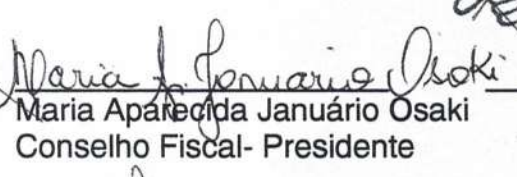 Maria A. Januario Osaki
Maria Aparecida Januário Osaki
Conselho Fiscal- Presidente